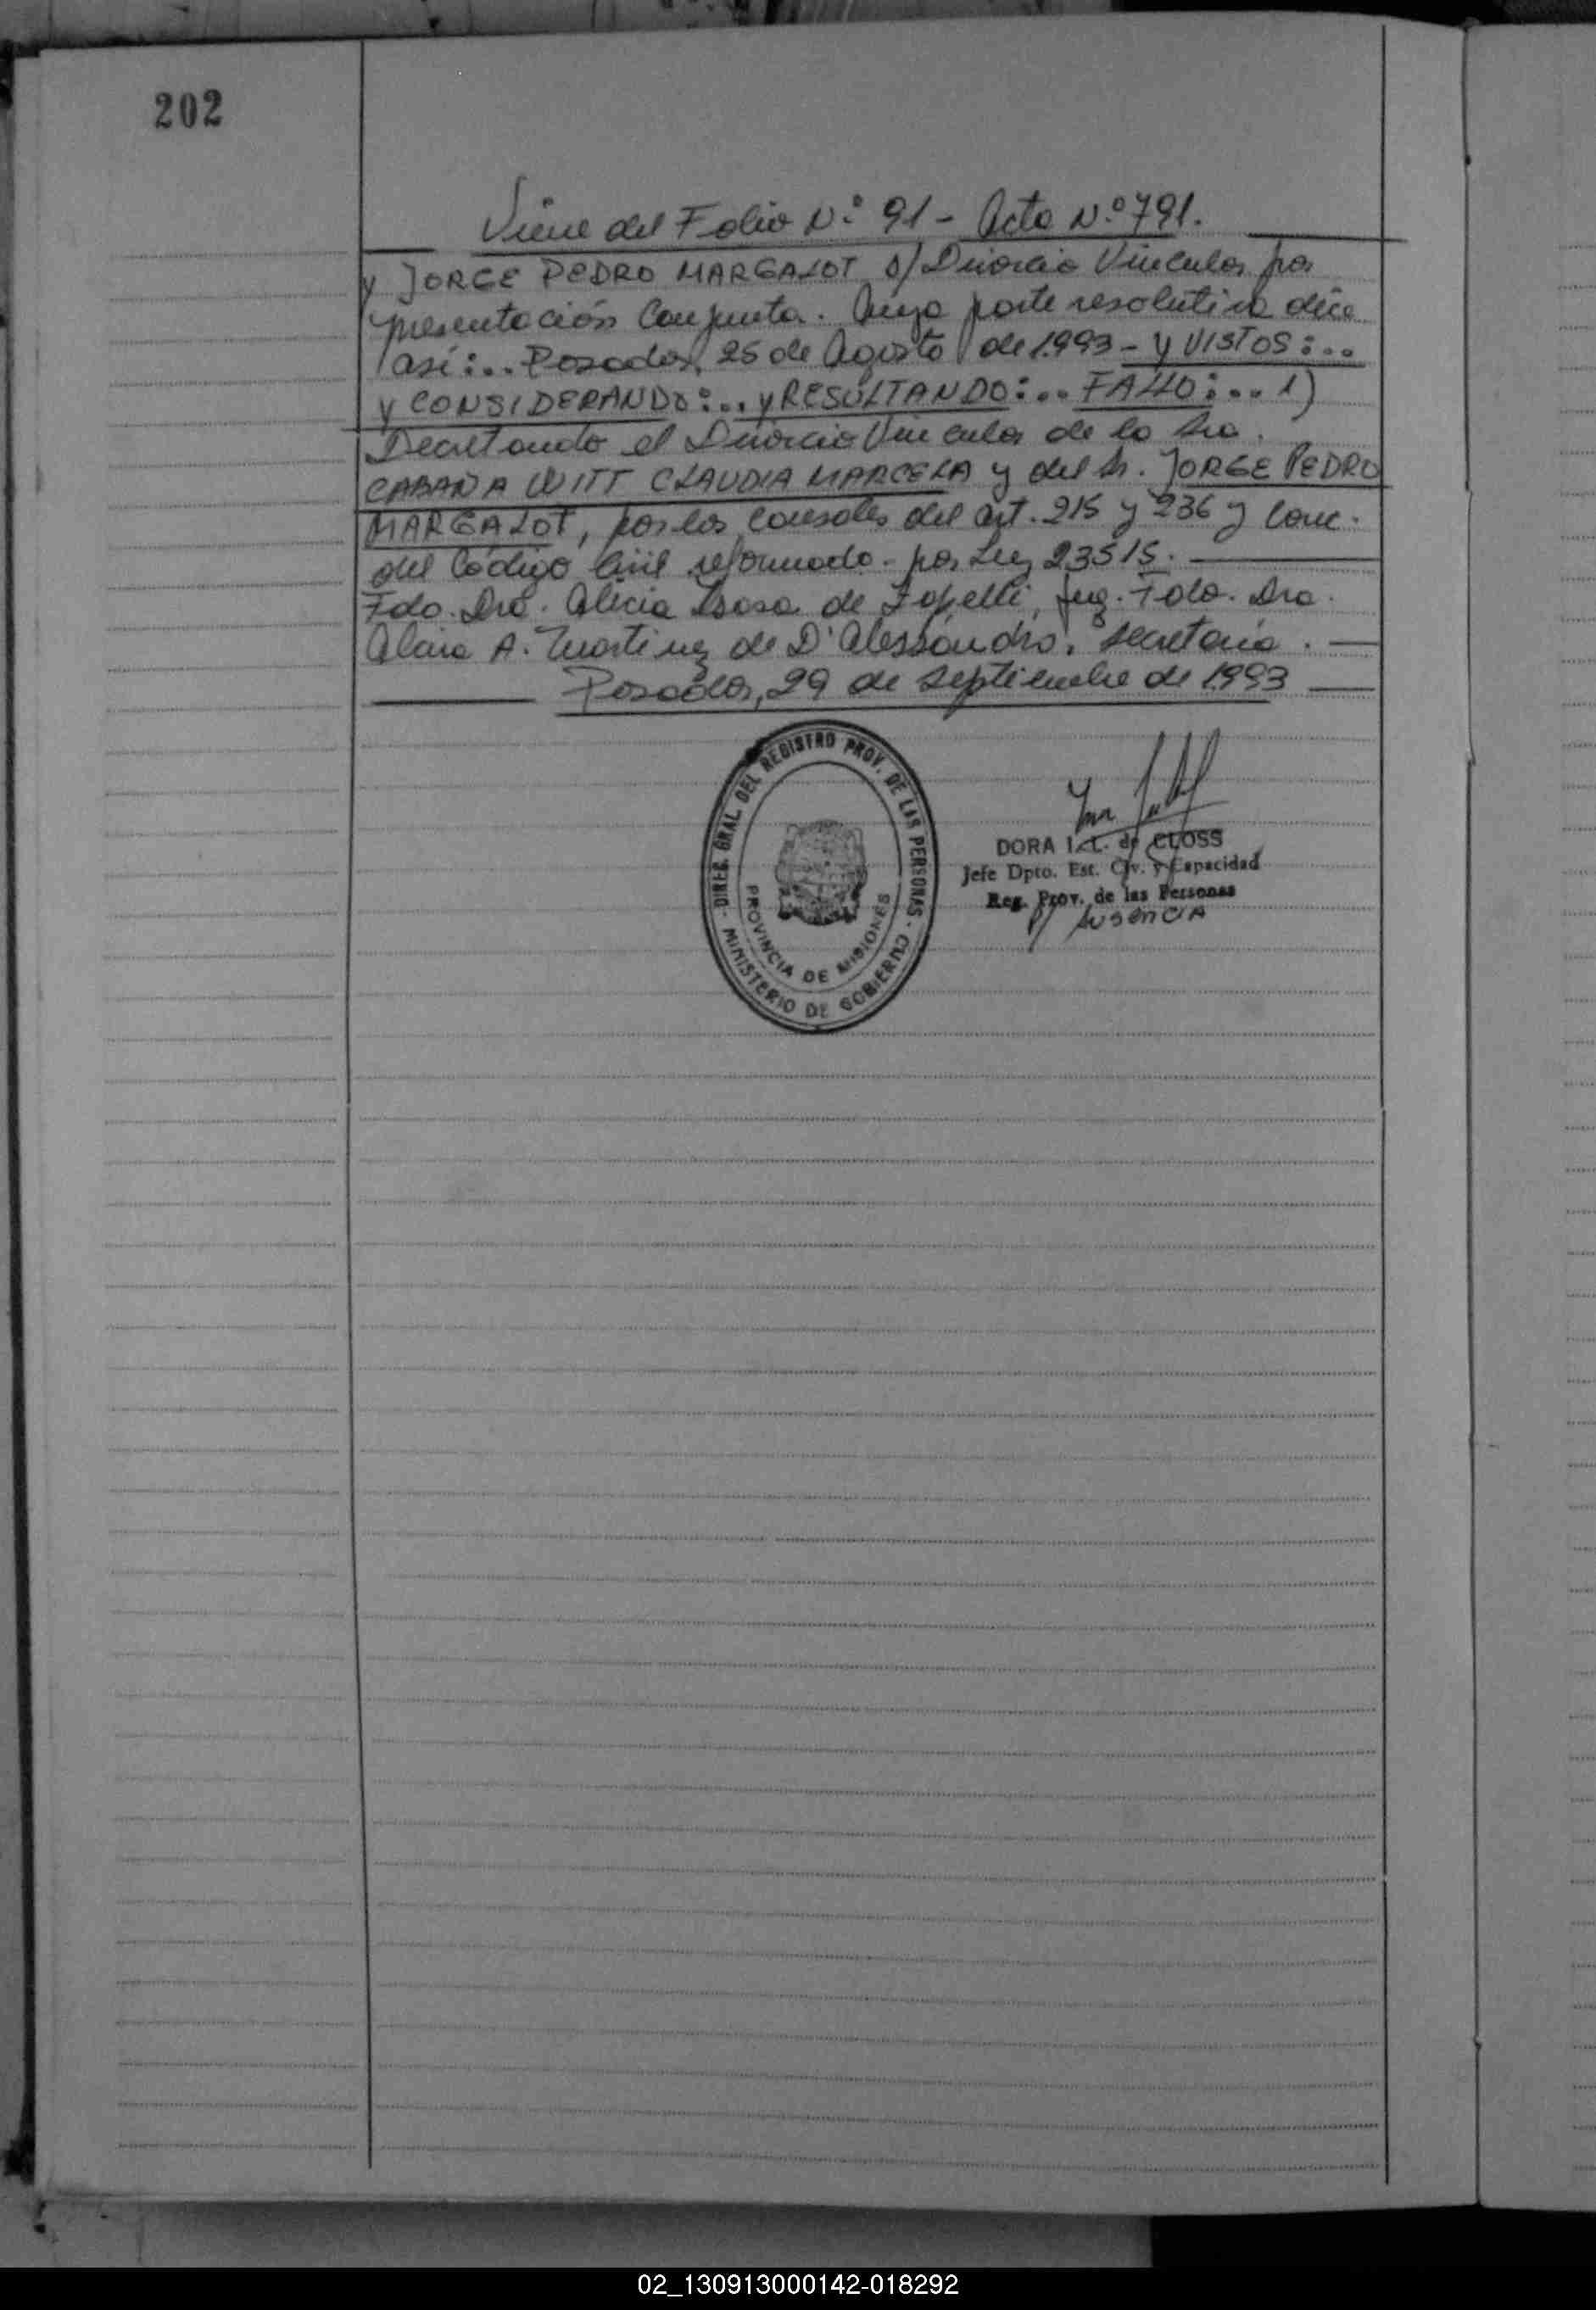 202
Viene del Folio N.º 91 - Acta N.º 791.
y JORGE PEDRO MARGALOT s/ Divorcio Vincular por
presentación Conjunta. Cuya parte resolutiva dice
así:.. Posadas, 25 de Agosto de 1.993 - y VISTOS:..
y CONSIDERANDO:.. y RESULTANDO:.. FALLO:.. 1)
Decretando el Divorcio Vincular de la Sra.
CABAÑA WITT CLAUDIA MARCELA y del Sr. JORGE PEDRO
MARGALOT, por las causales del art. 215 y 236 y conc.
del Código Civil reformado - por Ley 23515.
Fdo. Dra. Alicia Sosa de, Juez. Fdo. Dra.
A. Martinez de D'Alessandro, Secretaria.
Posadas, 29 de Septiembre de 1.993
DIREC. GRAL. DEL REGISTRO PROV. DE LAS PERSONAS -
MINISTERIO DE GOBIERNO
PROVINCIA DE MISIONES
DORA I. L. de CLOSS
Jefe Dpto. Est. Civ. y Capacidad
Reg. Prov. de las Personas
P/ AUSENCIA
02_130913000142-018292